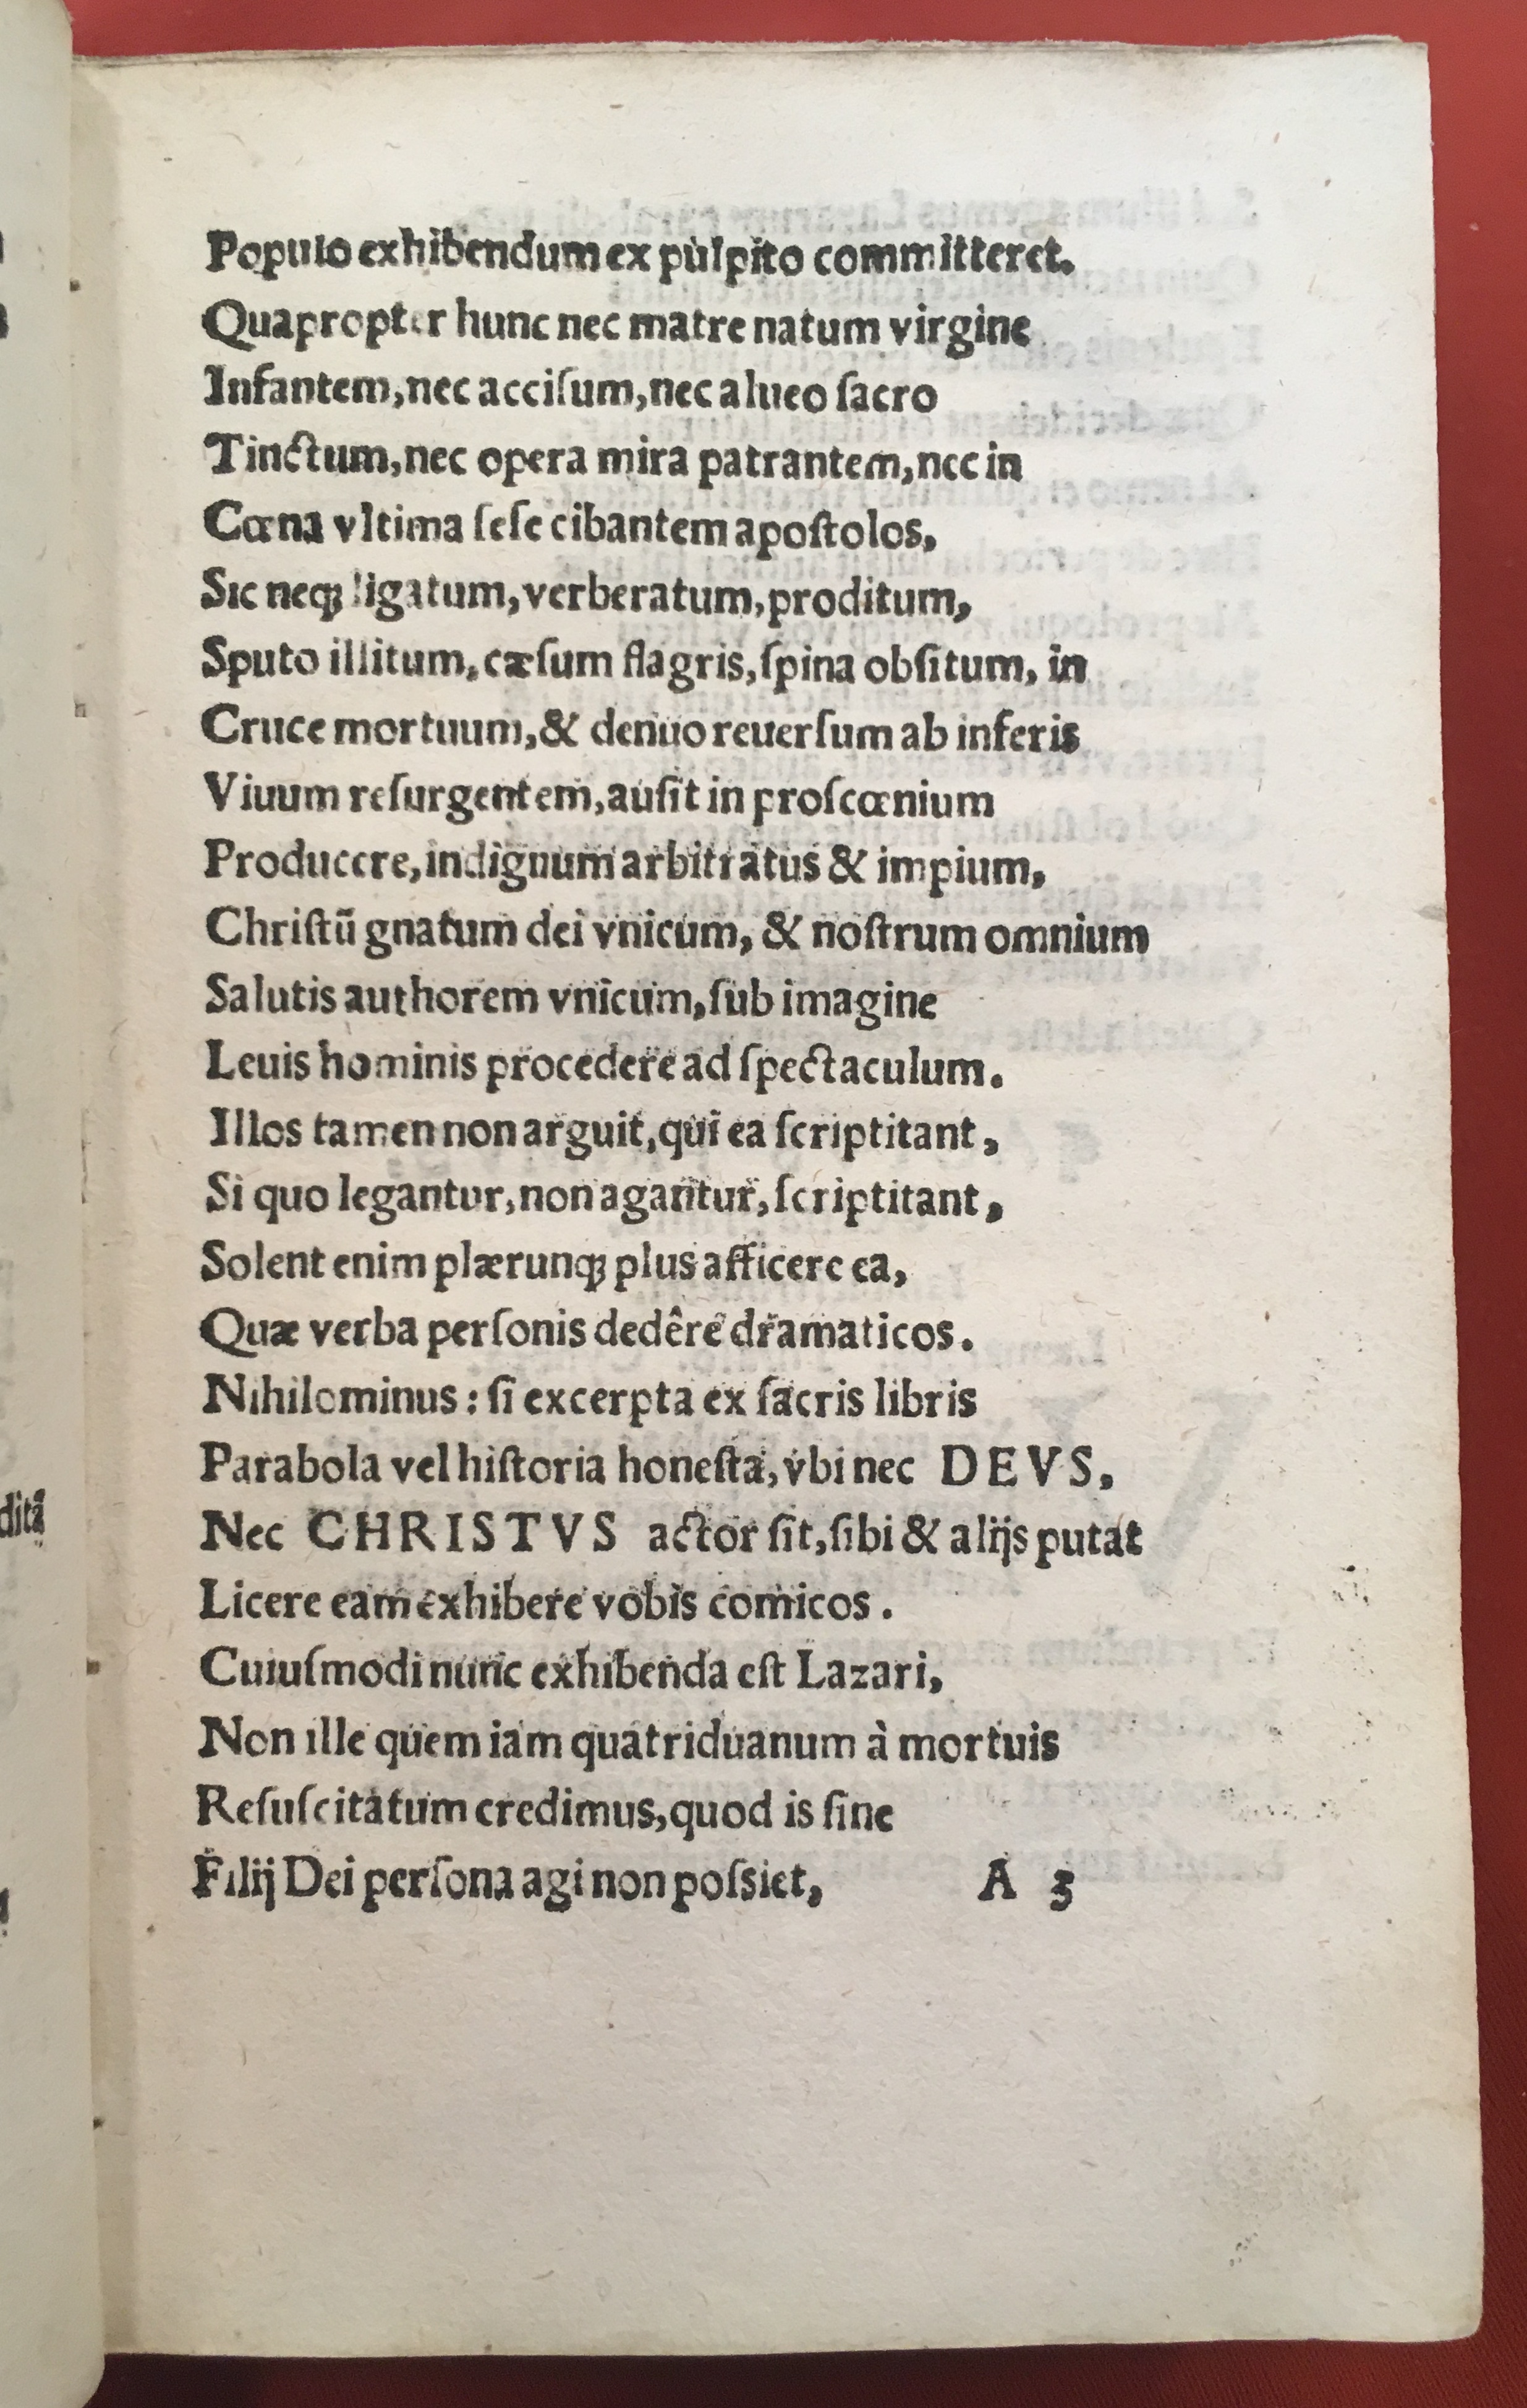 Populo exhibendum ex pulpito committeret.
Quapropter hunc nec matre natum virgine
Infantem, nec acciſum, nec alueo ſacro
Tinctum, nec opera mira patrantem, nec in
Cœna vltima ſeſe cibantem apoſtolos,
Sic neqꝫ ligatum, verberatum, proditum,
Sputo illitum, cæſum flagris, ſpina obſitum, in
Cruce mortuum, & denuo reuerſum ab inferis
Viuum reſurgentem, auſit in proſcœnium
Producere, indignum arbitratus & impium,
Chriſtū gnatum dei vnicum, & noſtrum omnium
Salutis authorem vnicum, ſub imagine
Leuis hominis procedere ad ſpectaculum.
Illos tamen non arguit, qui ea ſcriptitant,
Si quo legantur, non agantur, ſcriptitant,
Solent enim plærunqꝫ plus afficere ea,
Quæ verba perſonis dedêre dramaticos.
Nihilominus: ſi excerpta ex ſacris libris
Parabola vel hiſtoria honeſta, vbi nec DEVS,
Nec CHRISTVS actor ſit, ſibi & alijs putat
Licere eam exhibere vobis comicos.
Cuiuſmodi nunc exhibenda eſt Lazari,
Non ille quem iam quatriduanum à mortuis
Reſuſcitatum credimus, quod is ſine
Filij Dei perſona agi non poſsiet, A 3